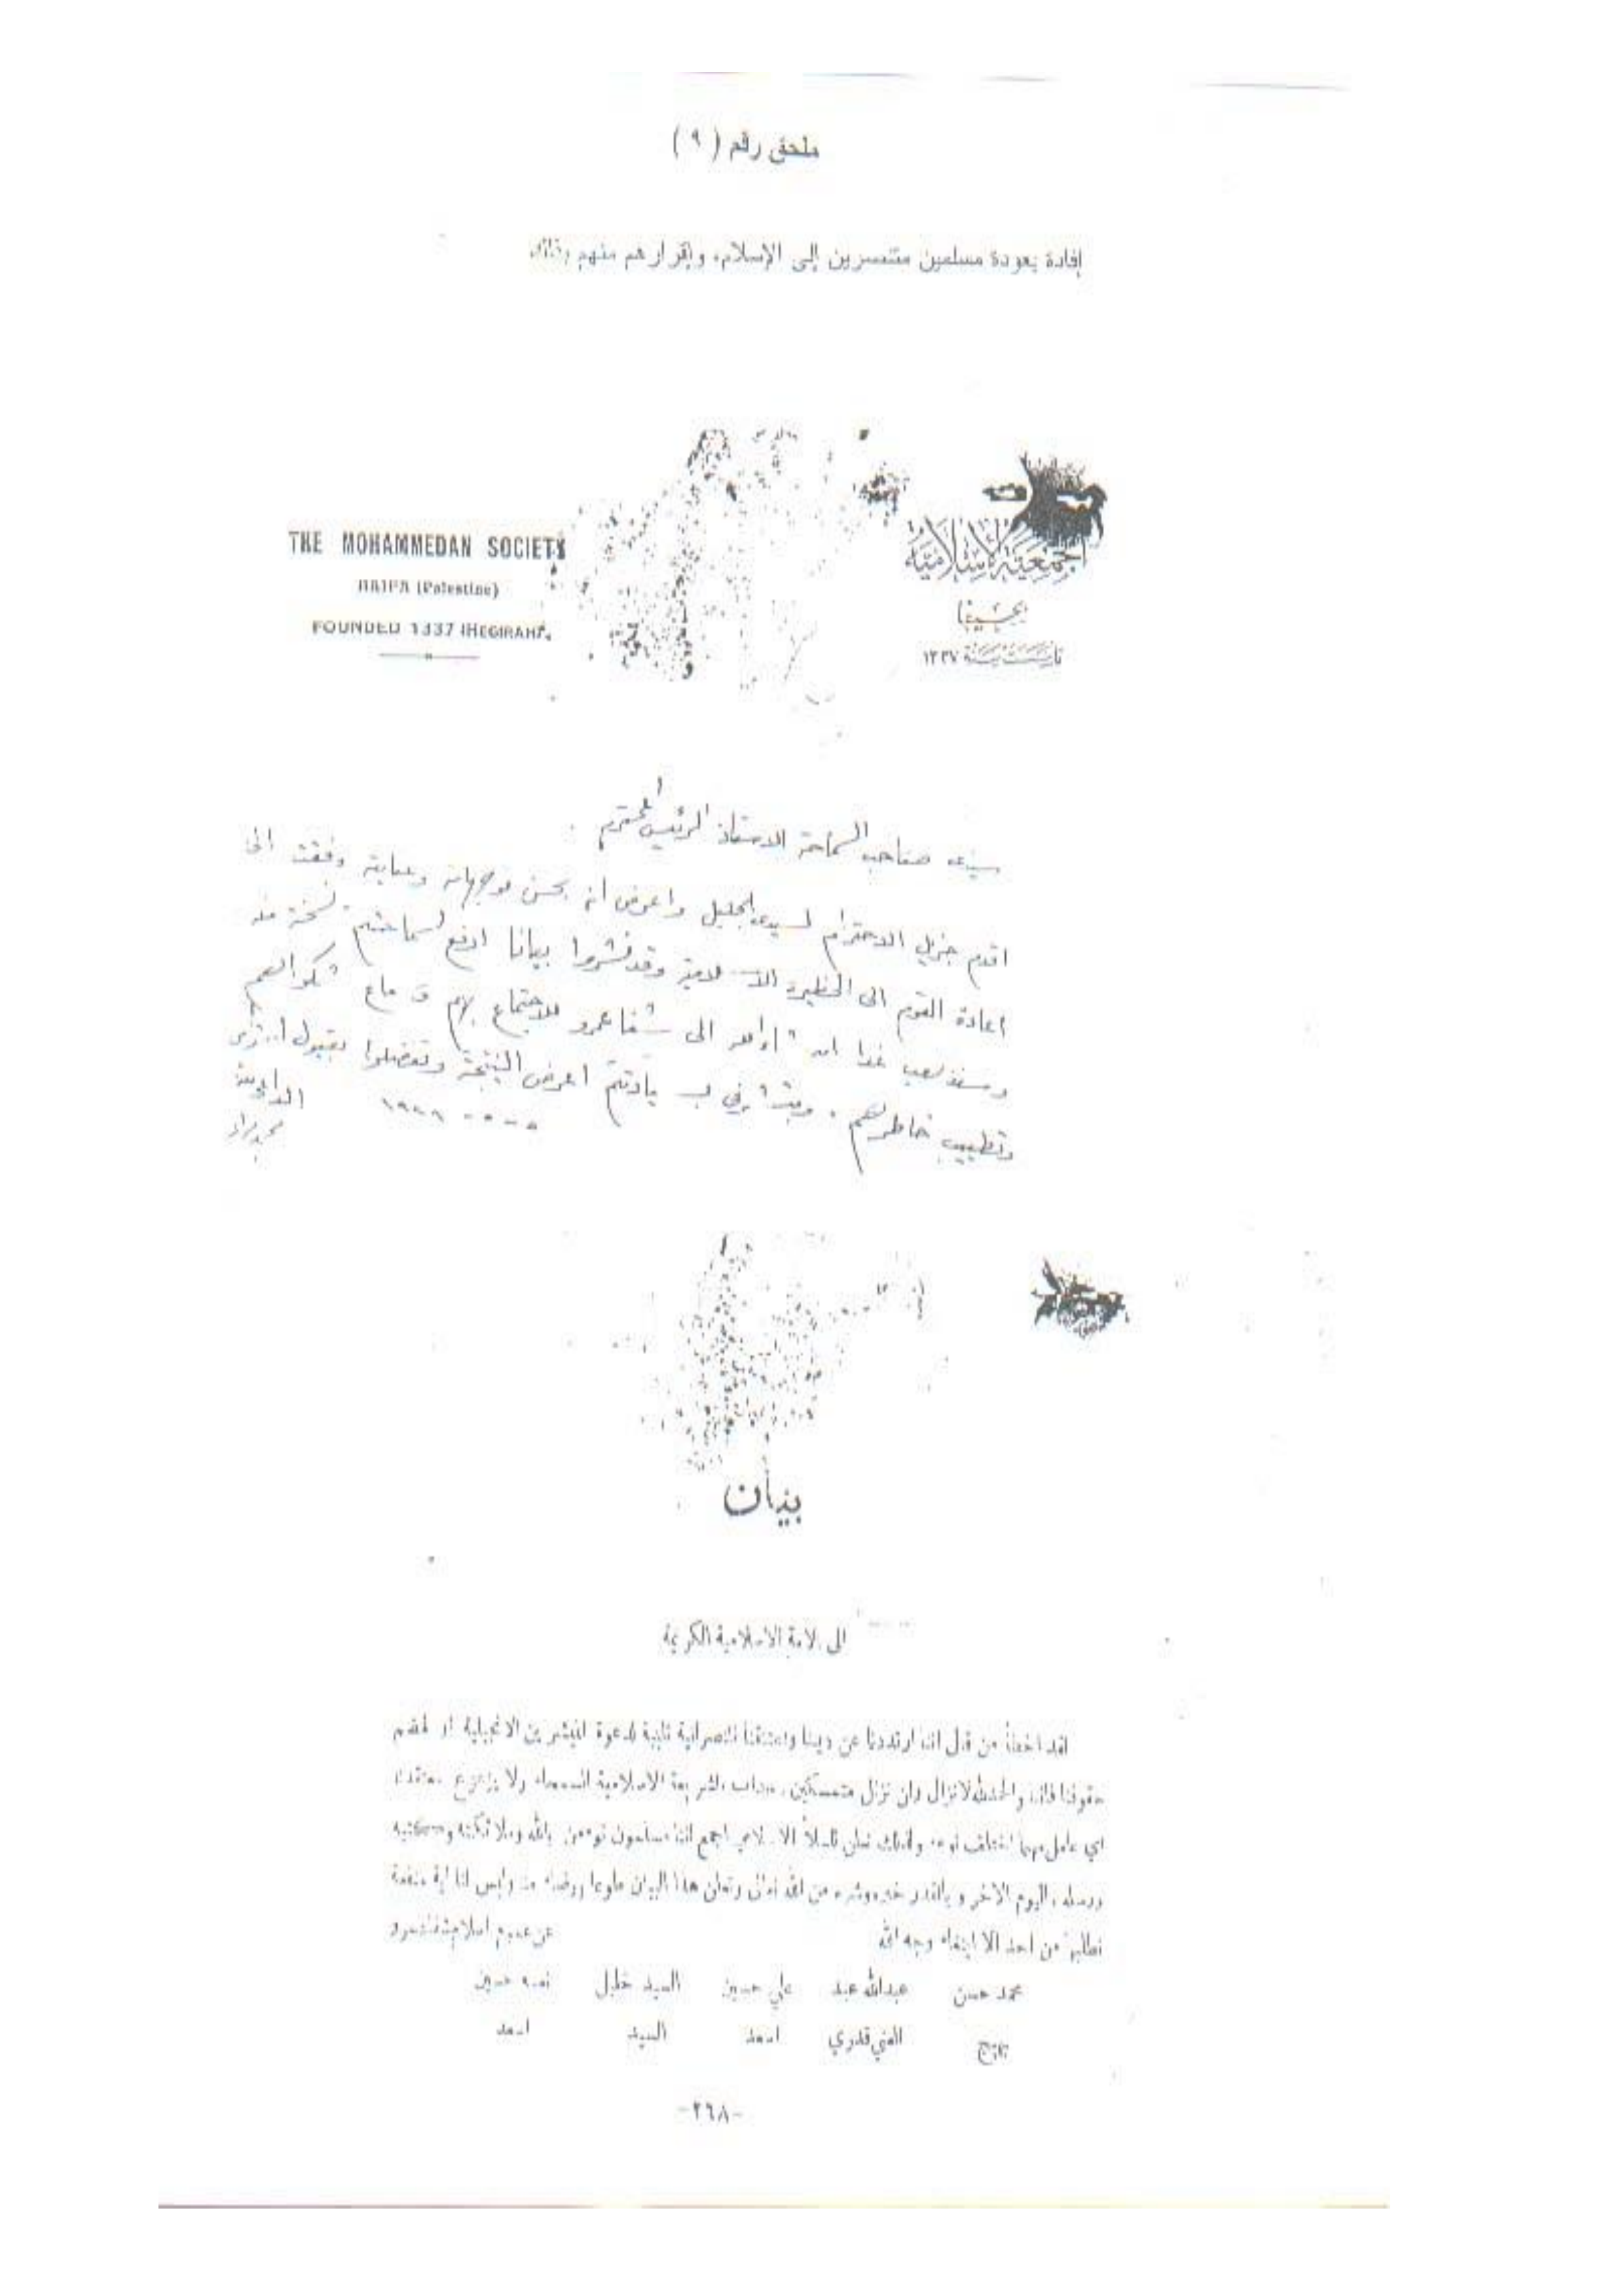 ملحق رقم (٩)
إفادة بعودة مسلمين متنصرين إلى الإسلام، وإقرارهم منهم بذلك
THE MOHAMMEDAN SOCIETY
HAIFA (Palestine)
FOUNDED 1337 (HEGIRAH)
الجمعية الإسلامية
بحيفا
تأسست سنة ١٣٣٧
سيدي صاحب السماحة الاستاذ الرئيس المحترم
اقدم جزيل الاحترام لسيدي الجليل واعرض انه بحسن وعناية وفقت الى
اعادة القوم الى الحظيرة الاسلامية وقد نشروا بيانا ارفع لسماحتكم نسخة منه
وسنذهب غدا ان شاء الله الى شفاعمرو للاجتماع بهم وسماع شكواهم
وتطييب خاطرهم. اعرض النتيجة وتفضلوا بقبول
بيان
الى الامة الاسلامية الكريمة
لقد اخطأ من قال اننا ارتددنا عن ديننا واعتنقنا النصرانية تلبية لدعوة المبشرين الانجيلية او لهضم
حقوقنا فاننا والحمد لله لا نزال ولن نزال متمسكين الشريعة الاسلامية السمحاء ولا يزعزع معتقدنا
اي عامل مهما اختلف نوعه ولذلك نعلن للملأ الاسلامي اجمع اننا مسلمون نؤمن بالله وملائكته وكتبه
ورسله واليوم الآخر وبالقدر خيره وشره من الله تعالى ونعلن هذا البيان طوعا ورضاء منا وليس لنا اية منفعة
نطلبها من احد الا ابتغاء وجه الله
عن عموم اسلام شفاعمرو
محمد حسن عبدالله عبد علي حسين السيد خليل حسين
الغني قدري اسعد السيد اسعد
-٢٦٨-